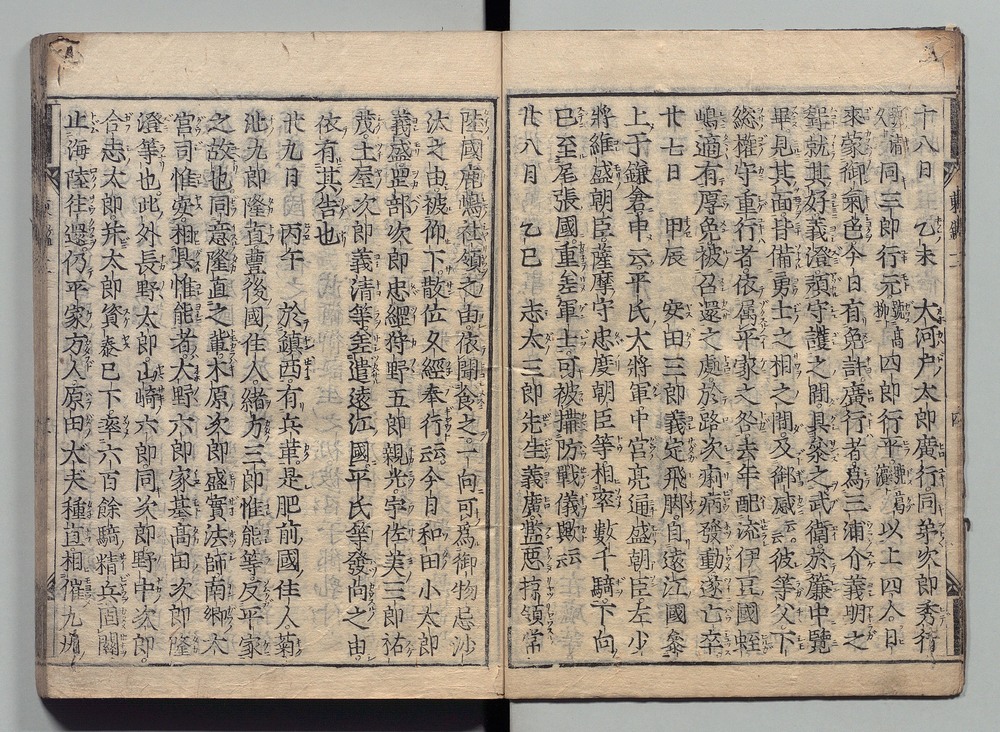 十八日 乙未 大河戸太郎廣行同弟次郎秀行
同三郎行元號高柳四郎行平號葛濱以上四人日
來蒙御氣色今日有免許廣行者爲三浦介義明之
聟就其好義澄預守護之間具參之武衛於簾中覽
畢見其面皆備勇士之相之間及御感云云彼等父下
総權守重行者依属平家之咎去年配流伊豆國蛭
嶋適有厚免被召還之處於路次痢病發動遂亡卒
廿七日 甲辰 安田三郎義定飛脚自遠江國參
上于鎌倉申云平氏大將軍中宮亮通盛朝臣左少
將維盛朝臣薩摩守忠度朝臣等相率數千騎下向
已至尾張國重差軍士可被構防戰儀歟云云
廿八日 乙巳 志太三郎先生義廣濫惡掠領常
陸國鹿嶋社領之由依聞食之一向可爲御物忌沙
汰之由被仰下散位久經奉行云云今日和田小太郎
義盛岡部次郎忠綱狩野五郎親光宇佐美三郎祐
茂土屋次郎義清等差遣遠江國平氏等發向之由
依有其告也
廿九日 丙午 於鎮西有兵革是肥前國住人菊
池九郎隆直豊後國住人緒方三郎惟能等反平家
之故也同意隆直之輩木原次郎盛實法師南郷大
宮司惟安相具惟能者大野六郎家基高田次郎隆
澄等也此外長野太郎山崎六郎同次郎野中次郎
合志太郎并太郎資泰已下率六百餘騎精兵固關
止海陸往還仍平家方人原田大夫種直相催九州